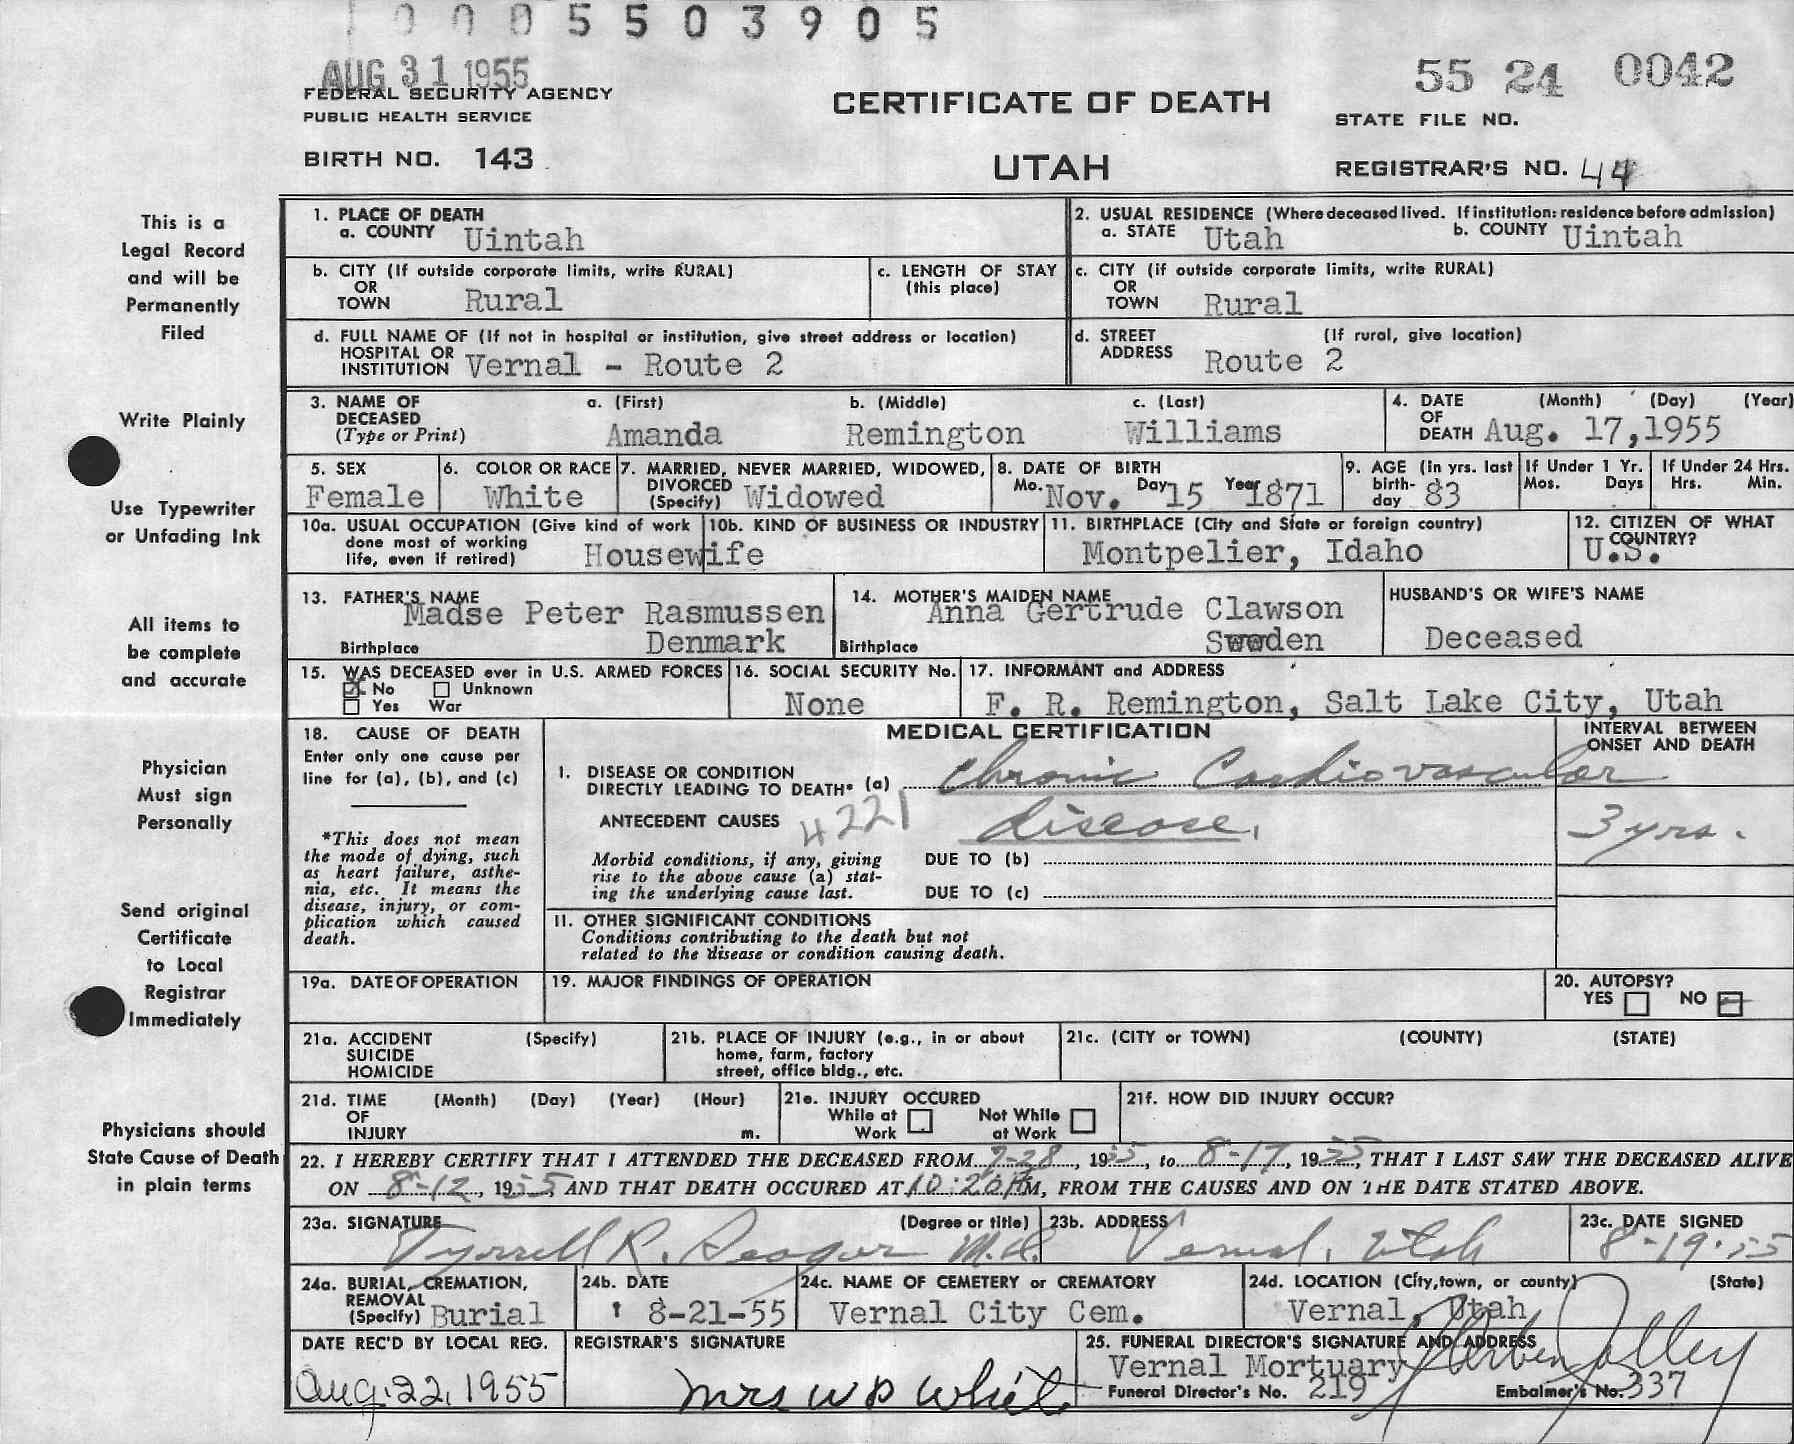 0005503905
AUG 31 1955
55 24 0042
FEDERAL SECURITY AGENCY
PUBLIC HEALTH SERVICE
CERTIFICATE OF DEATH
STATE FILE NO.
BIRTH NO. 143
UTAH
REGISTRAR'S NO. 44
This is a
Legal Record
and will be
Permanently
Filed
Write Plainly
Use Typewriter
or Unfading Ink
All items to
be complete
and accurate
Physician
Must sign
Personally
Send original
Certificate
to Local
Registrar
Immediately
Physicians should
State Cause of Death
in plain terms
1. PLACE OF DEATH
a. COUNTY Uintah
2. USUAL RESIDENCE (Where deceased lived. If institution: residence before admission)
a. STATE Utah b. COUNTY Uintah
b. CITY (If outside corporate limits, write RURAL)
OR
TOWN Rural
c. LENGTH OF STAY
(this place)
c. CITY (if outside corporate limits, write RURAL)
OR
TOWN Rural
d. FULL NAME OF (If not in hospital or institution, give street address or location)
HOSPITAL OR
INSTITUTION Vernal - Route 2
d. STREET (If rural, give location)
ADDRESS Route 2
3. NAME OF a. (First) b. (Middle) c. (Last)
DECEASED
(Type or Print) Amanda Remington Williams
4. DATE (Month) (Day) (Year)
OF
DEATH Aug. 17,1955
5. SEX
Female
6. COLOR OR RACE
White
7. MARRIED, NEVER MARRIED, WIDOWED,
DIVORCED
(Specify) Widowed
8. DATE OF BIRTH
Mo. Nov. Day 15 Year 1871
9. AGE (In yrs. last
birth-
day 83
If Under 1 Yr.
Mos. Days
If Under 24 Hrs.
Hrs. Min.
10a. USUAL OCCUPATION (Give kind of work
done most of working
life, even if retired) Housewife
10b. KIND OF BUSINESS OR INDUSTRY
11. BIRTHPLACE (City and State or foreign country)
Montpelier, Idaho
12. CITIZEN OF WHAT
COUNTRY?
U.S.
13. FATHER'S NAME
Madse Peter Rasmussen
Birthplace Denmark
14. MOTHER'S MAIDEN NAME
Anna Gertrude Clawson
Birthplace Sweden
HUSBAND'S OR WIFE'S NAME
Deceased
15. WAS DECEASED ever in U.S. ARMED FORCES
No Unknown
Yes War
16. SOCIAL SECURITY No.
None
17. INFORMANT and ADDRESS
F. R. Remington, Salt Lake City, Utah
18. CAUSE OF DEATH
Enter only one cause per
line for (a), (b), and (c)
*This does not mean
the mode of dying, such
as heart failure, asthe-
nia, etc. It means the
disease, injury, or com-
plication which caused
death.
MEDICAL CERTIFICATION
INTERVAL BETWEEN
ONSET AND DEATH
I. DISEASE OR CONDITION
DIRECTLY LEADING TO DEATH* (a) Chronic Cardiovascular
ANTECEDENT CAUSES 4221 disease. 3 yrs.
Morbid conditions, if any, giving
rise to the above cause (a) stat-
ing the underlying cause last.
DUE TO (b)
DUE TO (c)
II. OTHER SIGNIFICANT CONDITIONS
Conditions contributing to the death but not
related to the disease or condition causing death.
19a. DATE OF OPERATION
19. MAJOR FINDINGS OF OPERATION
20. AUTOPSY?
YES NO
21a. ACCIDENT (Specify)
SUICIDE
HOMICIDE
21b. PLACE OF INJURY (e.g., in or about
home, farm, factory
street, office bldg., etc.
21c. (CITY or TOWN) (COUNTY) (STATE)
21d. TIME (Month) (Day) (Year) (Hour)
OF
INJURY m.
21e. INJURY OCCURED
While at Not While
Work at Work
21f. HOW DID INJURY OCCUR?
22. I HEREBY CERTIFY THAT I ATTENDED THE DECEASED FROM 7-28, 1955, to 8-17, 1955, THAT I LAST SAW THE DECEASED ALIVE
ON 8-12, 1955, AND THAT DEATH OCCURED AT 10:20 P.M, FROM THE CAUSES AND ON THE DATE STATED ABOVE.
23a. SIGNATURE (Degree or title)
Tyrrell R. Seager M.D.
23b. ADDRESS
Vernal, Utah
23c. DATE SIGNED
8-19-55
24a. BURIAL, CREMATION,
REMOVAL
(Specify) Burial
24b. DATE
8-21-55
24c. NAME OF CEMETERY or CREMATORY
Vernal City Cem.
24d. LOCATION (City, town, or county) (State)
Vernal, Utah
DATE REC'D BY LOCAL REG.
Aug. 22, 1955
REGISTRAR'S SIGNATURE
Mrs W D White
25. FUNERAL DIRECTOR'S SIGNATURE AND ADDRESS
Vernal Mortuary
Funeral Director's No. 219 Embalmer's No. 337